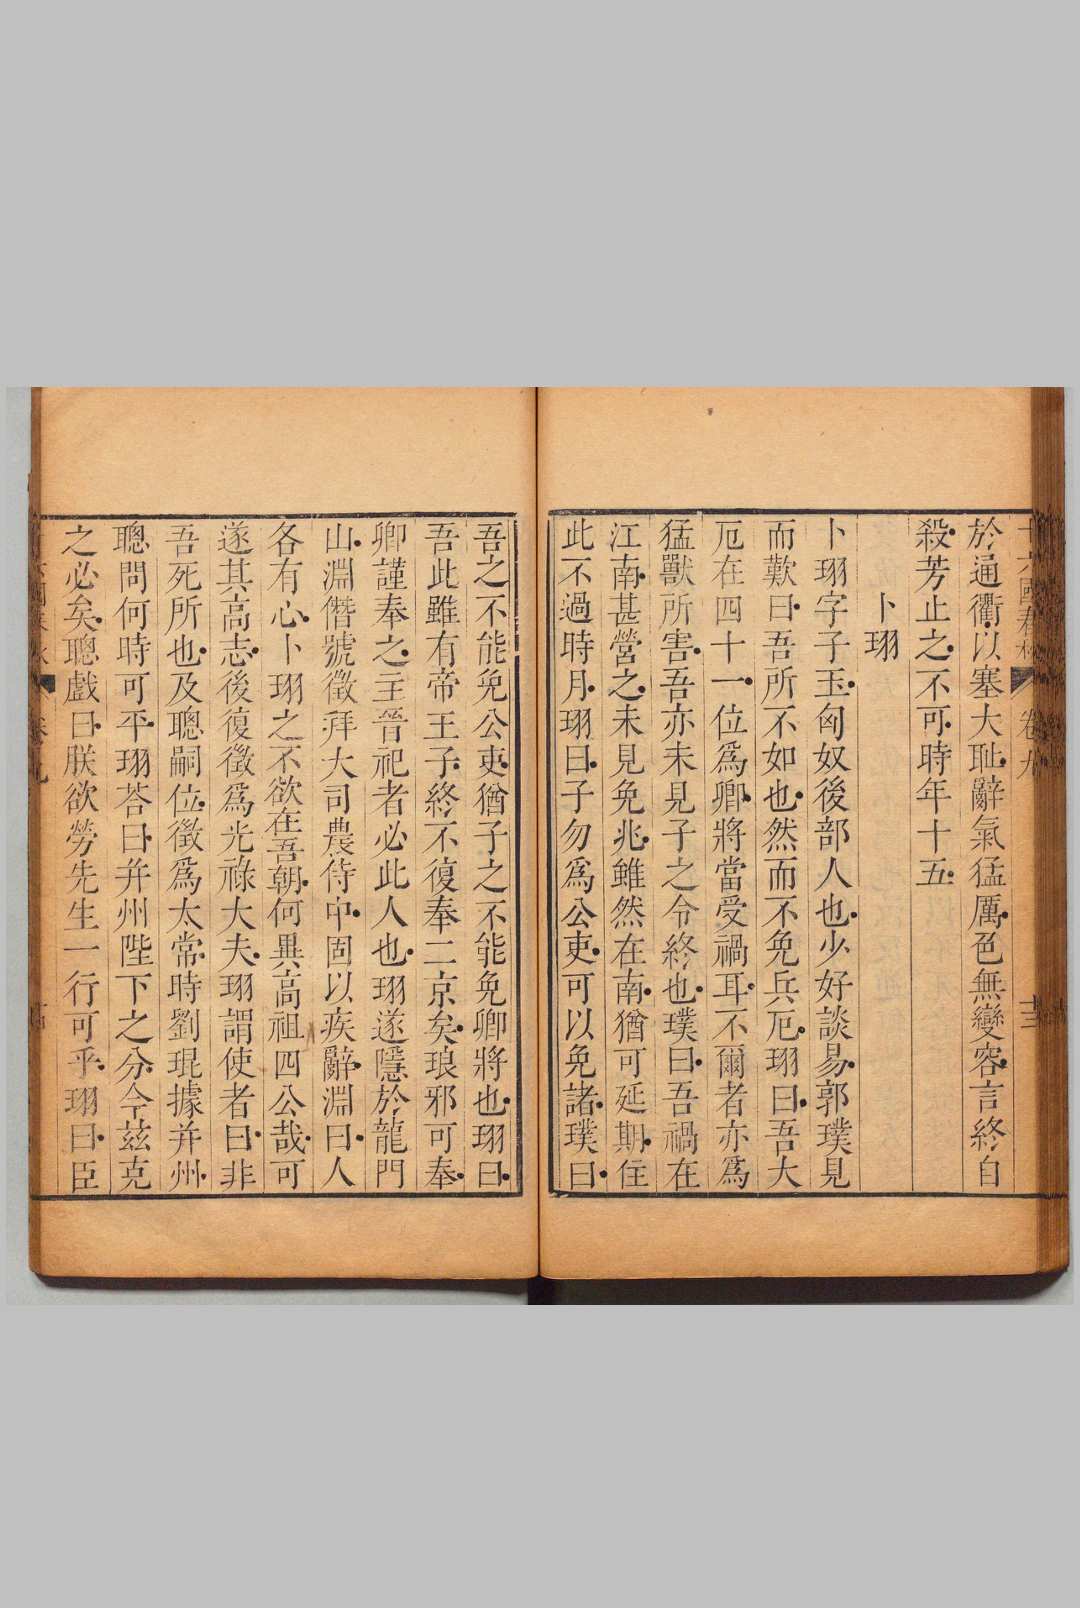 十六國春秋 卷九 十三
於通衢以塞大耻辭氣猛厲色無變容言終自
殺芳止之不可時年十五
卜珝
卜珝字子玉匈奴後部人也少好談易郭璞見
而歎曰吾所不如也然而不免兵厄珝曰吾大
厄在四十一位爲卿將當受禍耳不爾者亦爲
猛獸所害吾亦未見子之令終也璞曰吾禍在
江南甚營之未見免兆雖然在南猶可延期住
此不過時月珝曰子勿爲公吏可以免諸璞曰
吾之不能免公吏猶子之不能免卿將也珝曰
吾此雖有帝王子終不復奉二京矣琅邪可奉
卿謹奉之主晉祀者必此人也珝遂隱於龍門
山淵僭號徵拜大司農侍中固以疾辭淵曰人
各有心卜珝之不欲在吾朝何異高祖四公哉可
遂其高志後復徵爲光祿大夫珝謂使者曰非
吾死所也及聰嗣位徵爲太常時劉琨據并州
聰問何時可平珝荅曰并州陛下之分今茲克
之必矣聰戲曰朕欲勞先生一行可乎珝曰臣